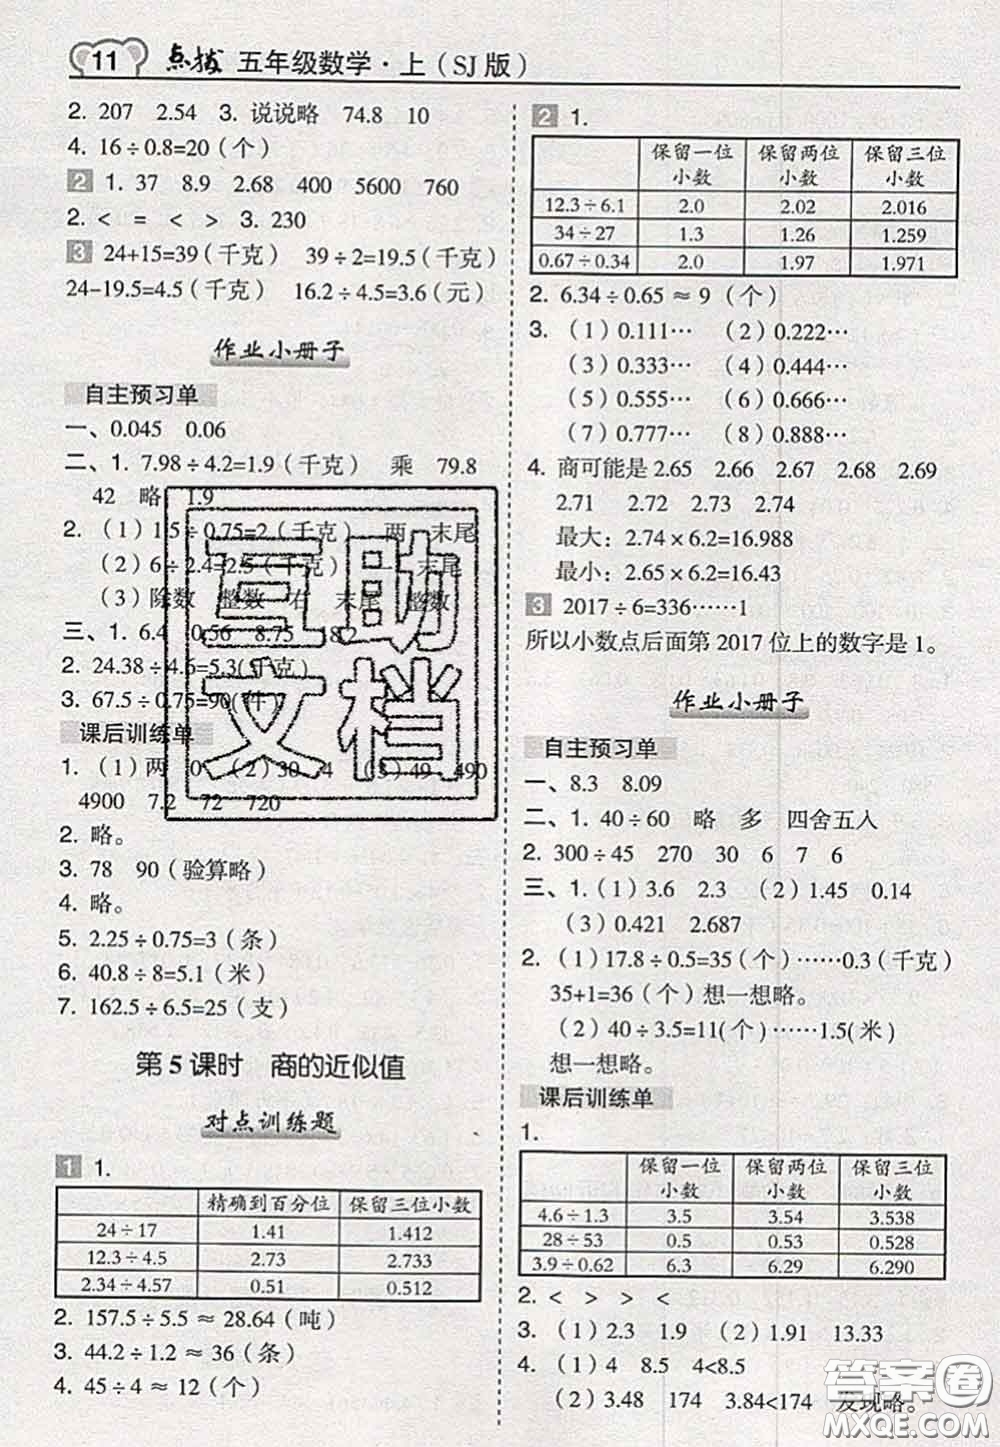 11 点拨 五年级数学·上(SJ版)
2. 207 2.54 3. 说说略 74.8 10
4. 16÷0.8=20(个)
2 1. 37 8.9 2.68 400 5600 760
2. < = < > 3. 230
3 24+15=39(千克) 39÷2=19.5(千克)
24-19.5=4.5(千克) 16.2÷4.5=3.6(元)
作业小册子
自主预习单
一、0.045 0.06
二、1. 7.98÷4.2=1.9(千克) 乘 79.8
42 略 1.9
2. (1)1.5÷0.75=2(千克) 两 末尾
(2)6÷2.4=2.5(千克) 一 末尾
(3)除数 整数 右 末尾 整数
三、1. 6.4 0.56 8.75 8.2
2. 24.38÷4.6=5.3(千克)
3. 67.5÷0.75=90(件)
课后训练单
1. (1)两 0 (2)30 4 (3)49 490
4900 7.2 72 720
2. 略。
3. 78 90(验算略)
4. 略。
5. 2.25÷0.75=3(条)
6. 40.8÷8=5.1(米)
7. 162.5÷6.5=25(支)
第5课时 商的近似值
对点训练题
1 1.
精确到百分位 保留三位小数
24÷17 1.41 1.412
12.3÷4.5 2.73 2.733
2.34÷4.57 0.51 0.512
2. 157.5÷5.5≈28.64(吨)
3. 44.2÷1.2≈36(条)
4. 45÷4≈12(个)
2 1.
保留一位小数 保留两位小数 保留三位小数
12.3÷6.1 2.0 2.02 2.016
34÷27 1.3 1.26 1.259
0.67÷0.34 2.0 1.97 1.971
2. 6.34÷0.65≈9(个)
3. (1)0.111… (2)0.222…
(3)0.333… (4)0.444…
(5)0.555… (6)0.666…
(7)0.777… (8)0.888…
4. 商可能是 2.65 2.66 2.67 2.68 2.69
2.71 2.72 2.73 2.74
最大: 2.74×6.2=16.988
最小: 2.65×6.2=16.43
3 2017÷6=336……1
所以小数点后面第 2017 位上的数字是 1。
作业小册子
自主预习单
一、8.3 8.09
二、1. 40÷60 略 多 四舍五入
2. 300÷45 270 30 6 7 6
三、1. (1)3.6 2.3 (2)1.45 0.14
(3)0.421 2.687
2. (1)17.8÷0.5=35(个)……0.3(千克)
35+1=36(个)想一想略。
(2)40÷3.5=11(个)……1.5(米)
想一想略。
课后训练单
1.
保留一位小数 保留两位小数 保留三位小数
4.6÷1.3 3.5 3.54 3.538
28÷53 0.5 0.53 0.528
3.9÷0.62 6.3 6.29 6.290
2. < > > <
3. (1)2.3 1.9 (2)1.91 13.33
4. (1)4 8.5 4<8.5
(2)3.48 174 3.48<174 发现略。
互助文档
答案圈
MXQE.COM